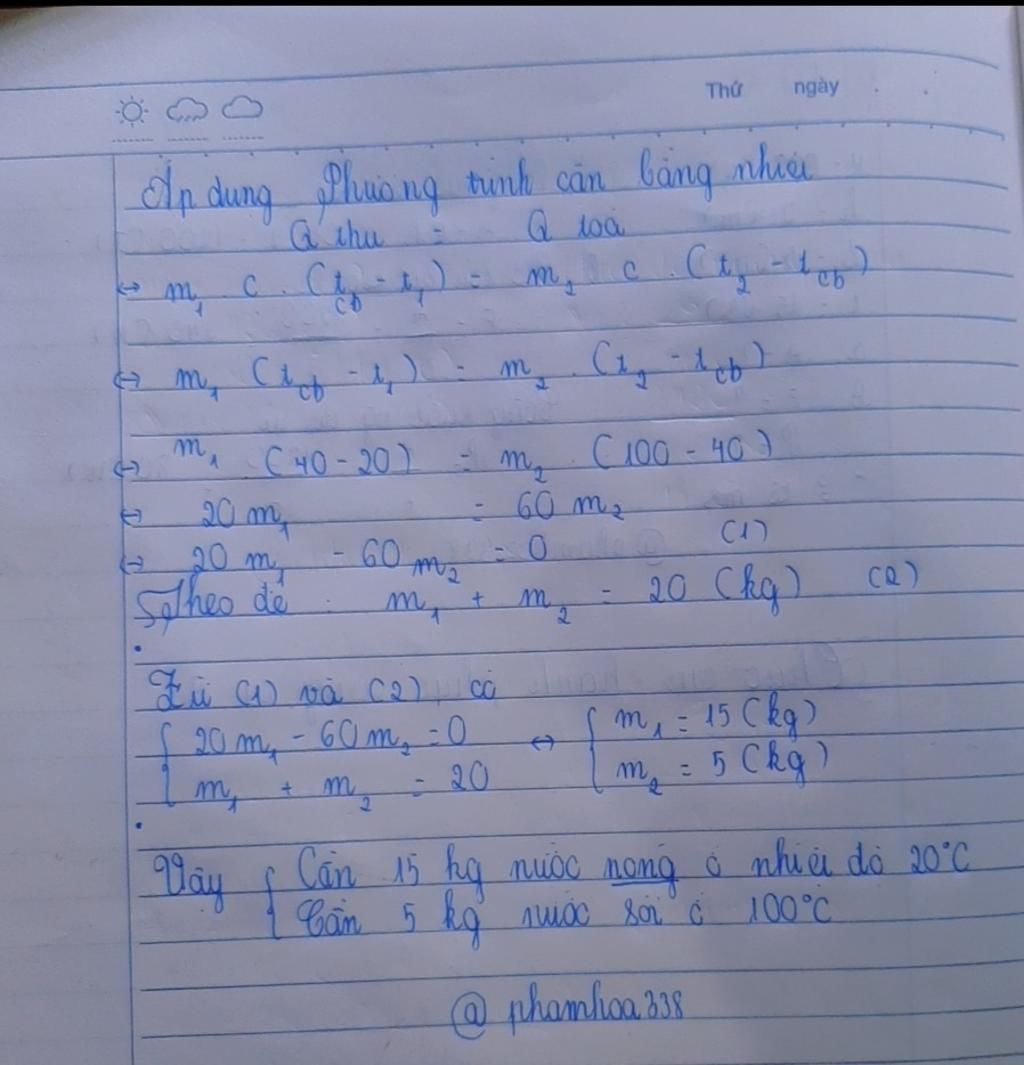 Thứ ngày
Áp dụng Phương trình cân bằng nhiệt
Q thu = Q toả
↔ m₁ c . (t_cb - t₁) = m₂ c . (t₂ - t_cb)
↔ m₁ (t_cb - t₁) = m₂ . (t₂ - t_cb)
↔ m₁ (40 - 20) = m₂ . (100 - 40)
↔ 20 m₁ = 60 m₂
↔ 20 m₁ - 60 m₂ = 0 (1)
Theo đề : m₁ + m₂ = 20 (kg) (2)
Từ (1) và (2) có
{ 20 m₁ - 60 m₂ = 0 ↔ { m₁ = 15 (kg)
m₁ + m₂ = 20 m₂ = 5 (kg)
Vậy { Cần 15 kg nước nong ở nhiệt độ 20°C
Cần 5 kg nước sôi ở 100°C
@ phamhoa338